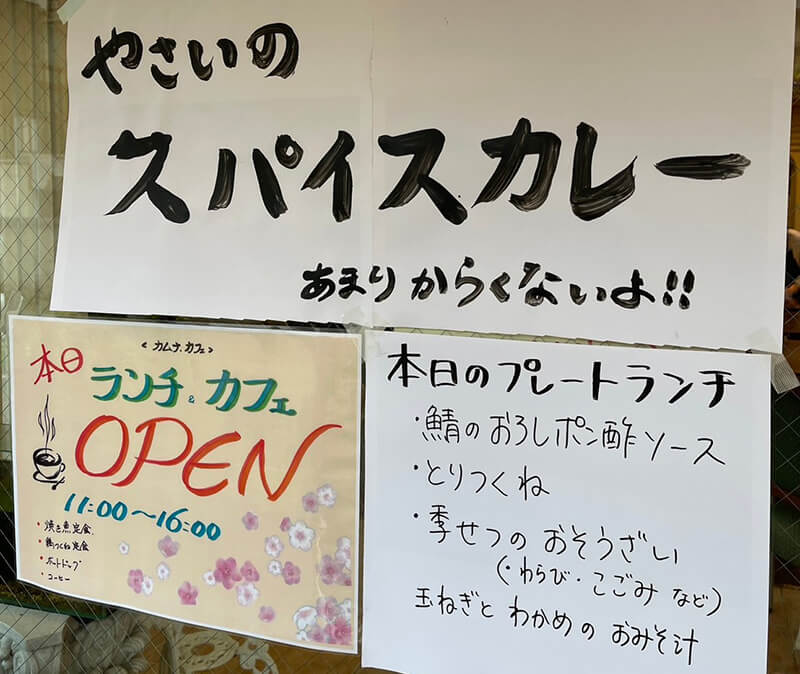 やさいの
スパイスカレー
あまりからくないよ!!
< カムナ.カフェ >
本日
ランチ & カフェ
OPEN
11:00〜16:00
・焼き魚定食
・鶏つくね定食
・ホットドッグ
・コーヒー
本日のプレートランチ
・鯖のおろしポン酢ソース
・とりつくね
・季せつの おそうざい
(・わらび・こごみ など)
玉ねぎと わかめの おみそ汁